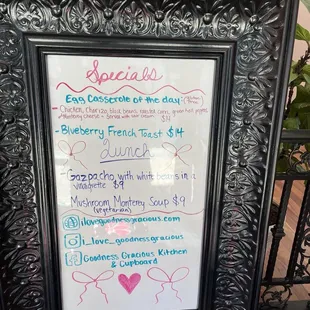 Specials
Egg Casserole of the day-
-Chicken, Chorizo, blue beans, roasted corn, green bell peppers
Monterey Cheese + Served with sour cream $14
-Blueberry French Toast $14
Lunch
-Gazpacho with white beans in a
vinaigrette $9
Mushroom Monterey Soup $9
(vegetarian)
ilovegoodnessgracious.com
i_love_goodnessgracious
Goodness Gracious Kitchen
& Cupboard